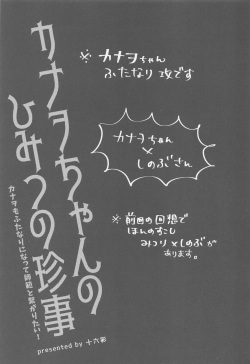 カナヲちゃんの
ひみつの珍事
カナヲもふたなりになって師範と繋がりたい!
presented by 十六彩
※カナヲちゃん
ふたなり 攻です
カナヲちゃん
×
しのぶさん
※前回の回想で
ほんのすこし
みつり×しのぶが
あります。